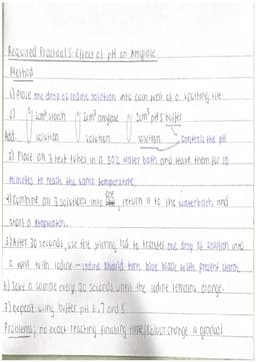 Required Practical 5 Effect of pH on Amylase
Method
1) Place one drop of iodine solution into each well of a spotting tile
2) 2cm³ starch 2cm³ amylase 2cm³ pH 5 buffer
Add: solution solution solution controls the pH
3) Place all 3 test tubes in a 30°C water bath and leave them for 10
minutes to reach the same temperature.
4) Combine all 3 solutions into one, return it to the waterbath and
start a stopwatch.
5) After 30 seconds, use the stirring rod to transfer one drop of solution into
a well with iodine - iodine should turn blue black with present starch.
6) Take a sample every 30 seconds until the iodine remains orange.
7) Repeat using buffer pH 6, 7 and 8
Problems, no exact reacting finishing time, colour change is gradual